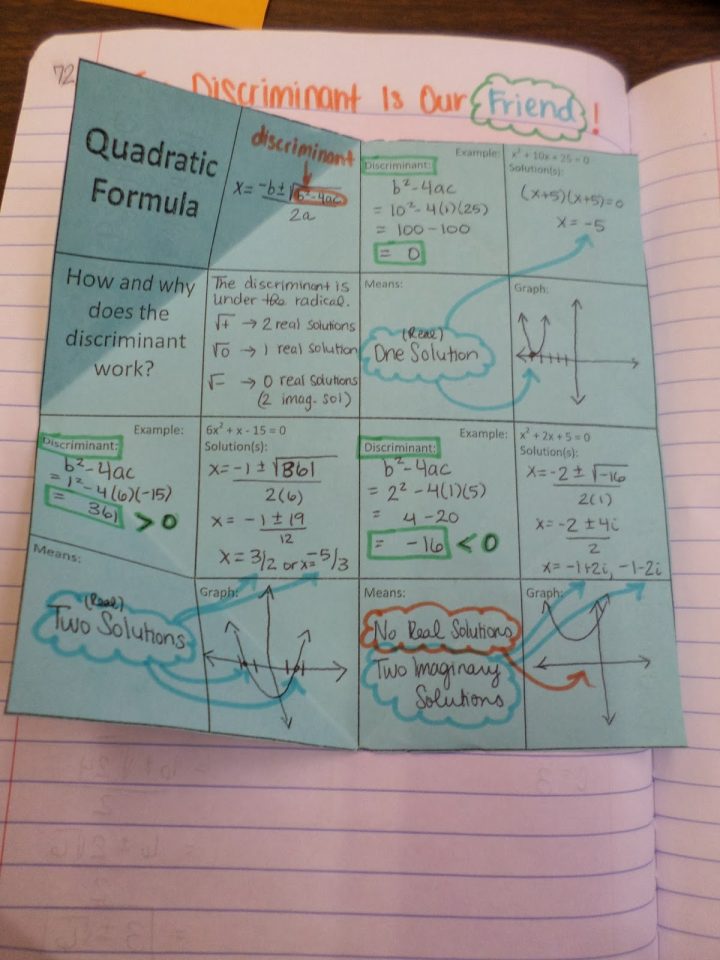 72
The Discriminant Is Our Friend!
Quadratic
Formula
discriminant
x = -b ± √b²-4ac
2a
Example:
x² + 10x + 25 = 0
Discriminant:
b²-4ac
= 10²-4(1)(25)
= 100-100
= 0
Solution(s):
(x+5)(x+5)=0
x = -5
How and why
does the
discriminant
work?
The discriminant is
under the radical.
√+ → 2 real solutions
√0 → 1 real solution
√- → 0 real solutions
(2 imag. sol)
Means:
(Real)
One Solution
Graph:
Example:
6x² + x - 15 = 0
Discriminant:
b²-4ac
= 1²-4(6)(-15)
= 361 > 0
Solution(s):
x = -1 ± √361
2(6)
x = -1 ± 19
12
x = 3/2 or x = -5/3
Example:
x² + 2x + 5 = 0
Discriminant:
b²-4ac
= 2²-4(1)(5)
= 4-20
= -16 < 0
Solution(s):
x = -2 ± √-16
2(1)
x = -2 ± 4i
2
x = -1+2i, -1-2i
Means:
(Real)
Two Solutions
Graph:
Means:
No Real Solutions
Two Imaginary
Solutions
Graph: